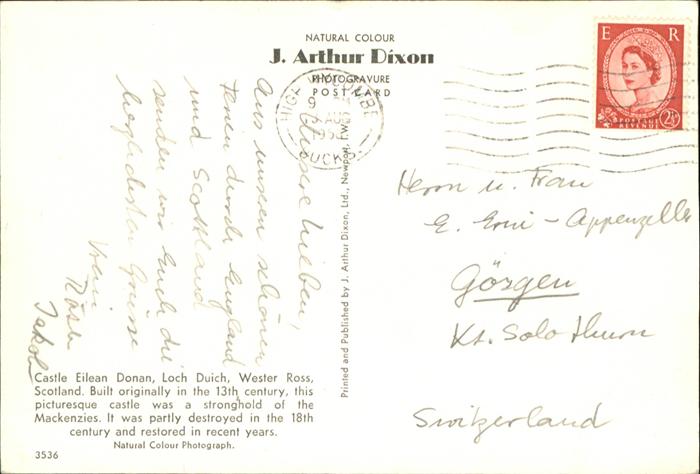 NATURAL COLOUR
J. Arthur Dixon
PHOTOGRAVURE
POST CARD
E R
POSTAGE
REVENUE
2½
HIGH WYCOMBE
9
AUG
BUCKS
Unsere Lieben,
Aus unseren schönen
Ferien durch England
und Scottland
senden wir Euch die
herzlichsten Grüsse
Vreni
Rösli
Jakob
Herrn u. Frau
E. Erni - Appenzeller
Gösgen
Kt. Solothurn
Switzerland
Printed and Published by J. Arthur Dixon, Ltd., Newport, I.W.
Castle Eilean Donan, Loch Duich, Wester Ross,
Scotland. Built originally in the 13th century, this
picturesque castle was a stronghold of the
Mackenzies. It was partly destroyed in the 18th
century and restored in recent years.
Natural Colour Photograph.
3536